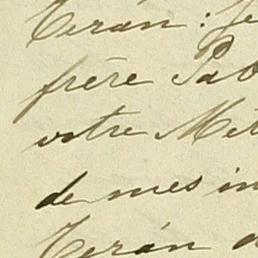 Terán : Je
frère Pab
votre Mét
de mes in
Terán a